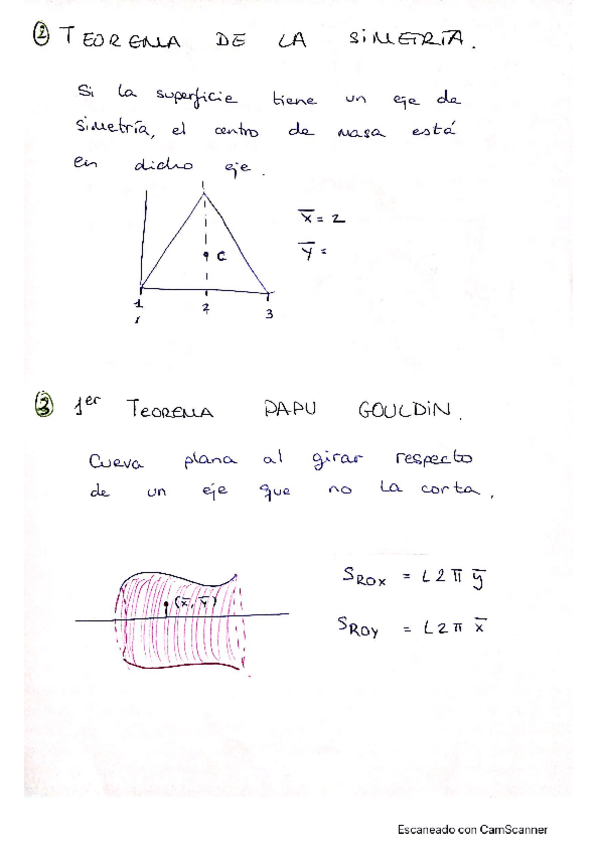 ② TEOREMA DE LA SIMETRÍA.
Si la superficie tiene un eje de
simetría, el centro de masa está
en dicho eje.
x̅ = 2
y̅ =
C
1 2 3
③ 1er TEOREMA PAPU GOULDIN.
Cueva plana al girar respecto
de un eje que no la corta.
(x̅, y̅)
SROX = L 2 π y̅
SROY = L 2 π x̅
Escaneado con CamScanner